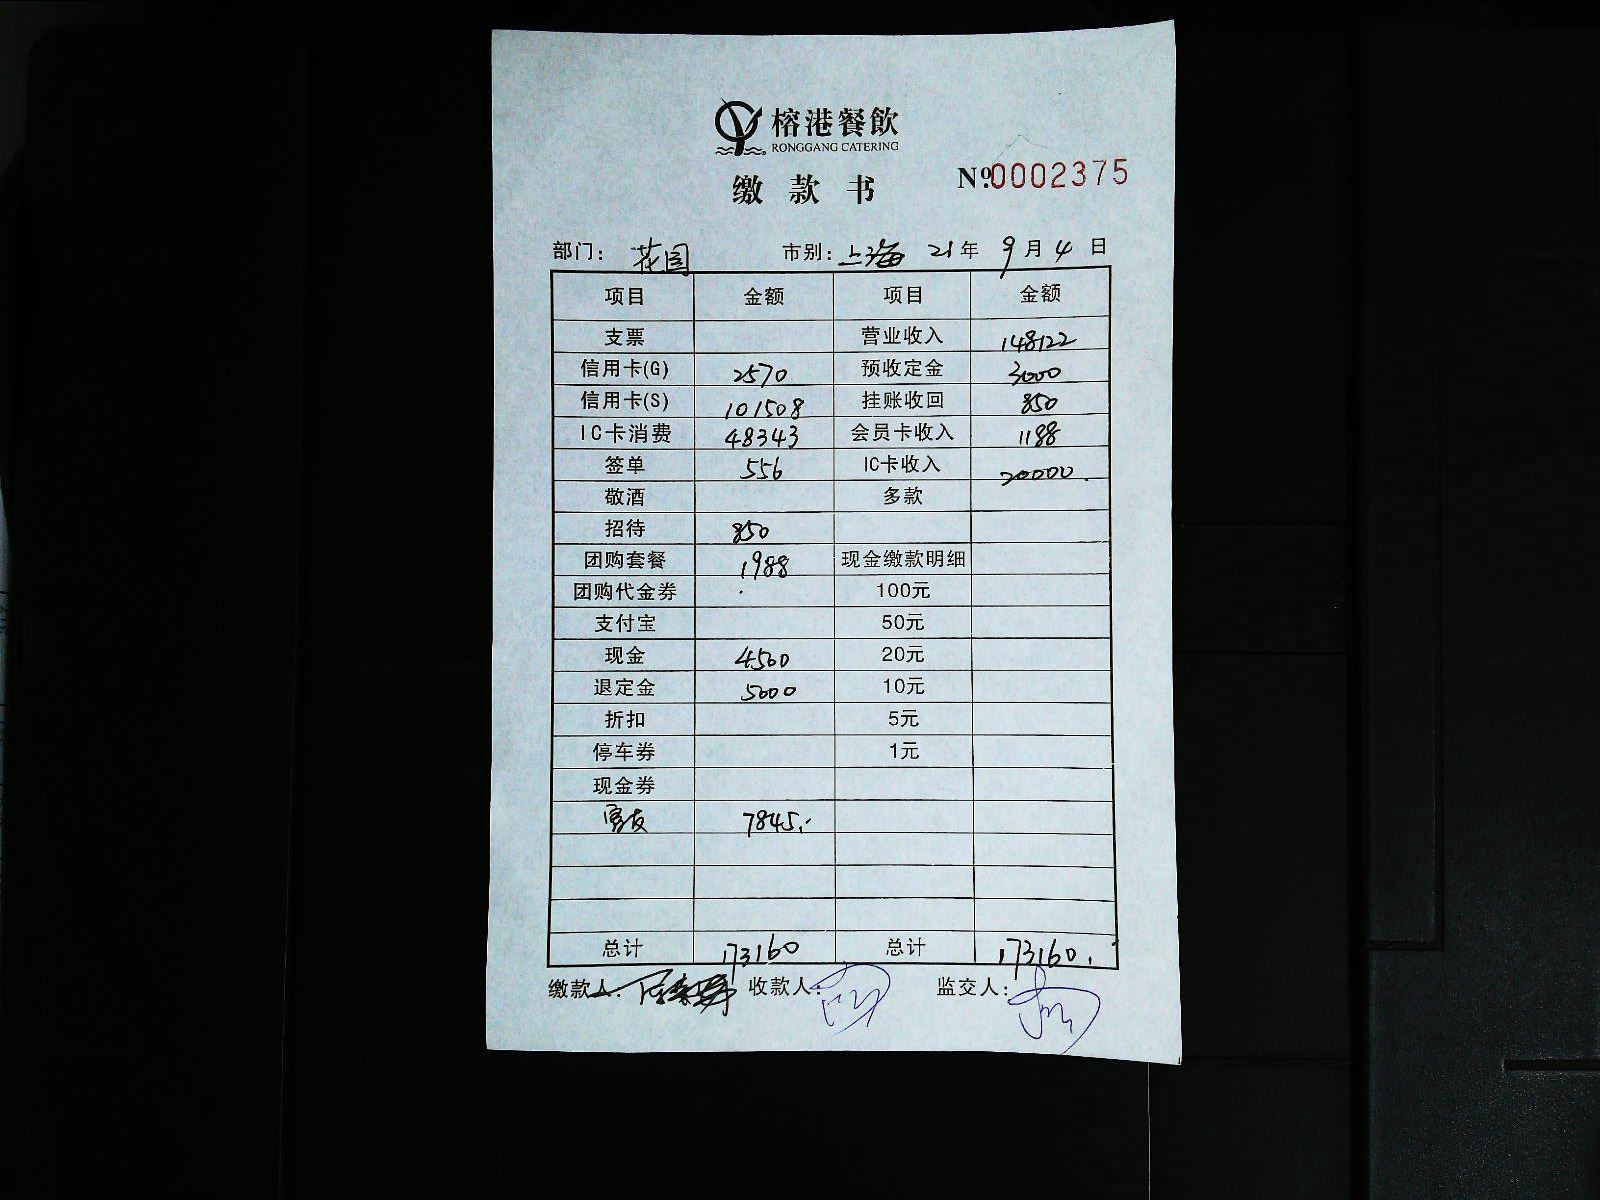 榕港餐飲
RONGGANG CATERING
缴款书
№0002375
部门: 花园 市别: 上海 21年 9月 4日
项目 金额 项目 金额
支票 营业收入 148122
信用卡(G) 2570 预收定金 3000
信用卡(S) 101508 挂账收回 850
IC卡消费 48343 会员卡收入 1188
签单 556 IC卡收入 20000.
敬酒 多款
招待 850
团购套餐 1988 现金缴款明细
团购代金券 100元
支付宝 50元
现金 4500 20元
退定金 5000 10元
折扣 5元
停车券 1元
现金券
7845.-
总计 173160 总计 173160.
缴款人: 收款人: 监交人: